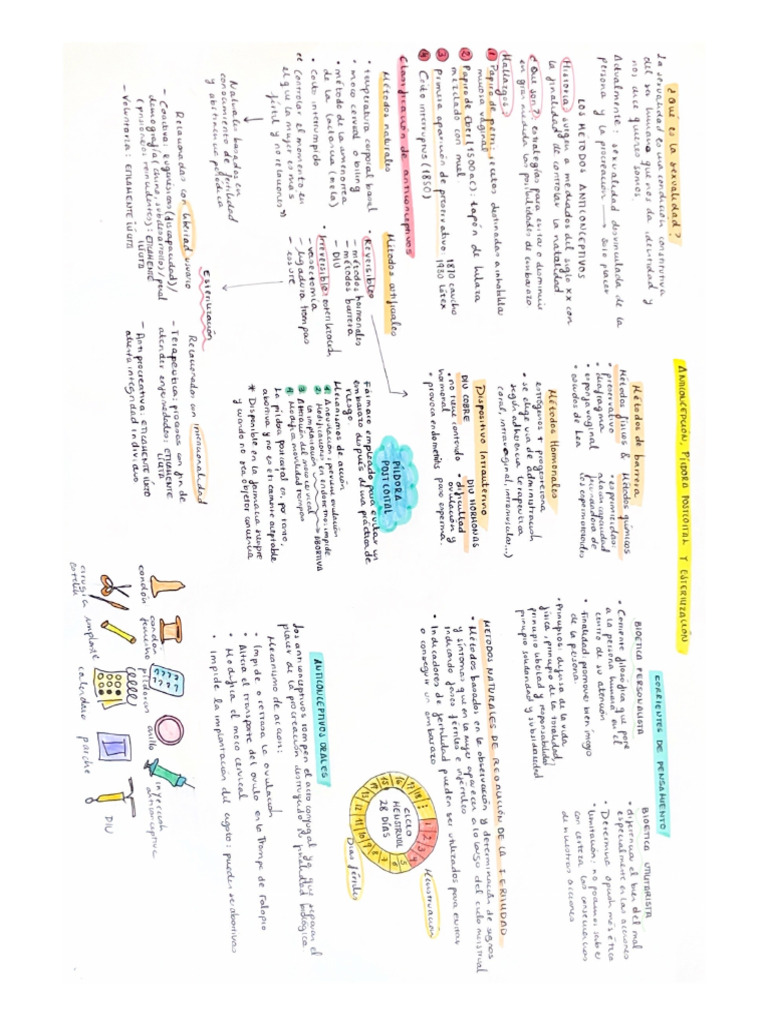 ANTICONCEPCIÓN, PÍLDORA POSTCOITAL Y ESTERILIZACIÓN
¿Qué es la sexualidad?
La sexualidad es una condición constitutiva
del ser humano que nos da identidad y
nos dice quienes somos
Actualmente: sexualidad desvinculada de la
persona y la procreación → solo placer
LOS METODOS ANTICONCEPTIVOS
Historia: surgen a mediados del siglo XX con
la finalidad de controlar la natalidad
¿Que son?: estrategias para evitar o disminuir
en gran medida las posibilidades de embarazo
Hallazgos
1 Papiro de petri: recetas destinadas a inhabilitar
mucosa vaginal
2 Papiro de Eber (1500 a.c): tapón de hilaza
mezclado con miel
3 Primera aparición de preservativo: 1870 caucho
1930 látex
4 Coito interruptus (1850)
Clasificación de anticonceptivos
Métodos naturales
• temperatura corporal basal
• moco cerval o biling
• método de la amenorrea
de la lactancia (mela)
• Coito interrumpido
el controlar el momento en
el que la mujer es más
fértil y no relaciones
Métodos artificiales
• Reversibles
- métodos hormonales
- métodos barrera
- DIU
• Irreversibles: esterilización
- vasectomía
- ligadura trompas
- essure
Naturales basados en
conocimiento de fertilidad
y abstinencia periódica
Esterilización
Relacionadas con libertad usuario
- Coactiva: eugenésicas (discapacidad)/
demográfica (chino, subdesarrollo)/penal
(presionados, reinsidentes): ETICAMENTE
ILÍCITA
- Voluntaria: ETICAMENTE ILÍCITA
Relacionadas con intencionalidad
- Terapeutica: privarse con fin de
atender enfermedades: ETICAMENTE
LÍCITA
- Antiprocreativa: ETICAMENTE ILÍCITO
afecta integridad individuo
Métodos de barrera
Métodos físicos & Métodos químicos
• preservativo
• diafragma
• esponja vaginal
• escudos de Lea
• espermicidas:
alteran capacidad
fecundadora de
los espermatozoides
Métodos Hormonales
estrógenos + progesterona
• se elige vía de administración
según adherencia terapeutica
(oral, intravaginal, intramuscular...)
Dispositivo Intrauterino
DIU COBRE
• no tiene contenido
hormonal
• provoca endometritis
DIU HORMONAS
• dificultad
ovulación y
paso esperma.
PÍLDORA
POSTCOITAL
Fármaco empleado para evitar un
embarazo después de una práctica de
riesgo
Mecanismos de acción
1 Anovulación: previene ovulación
2 Modificaciones en endometrio: impide
la implantación → ABORTIVA
3 Alteración del moco cervical
4 Modifica movilidad trompas
La píldora postcoital es, por tanto,
abortiva y no es éticamente aceptable
* Disponible en la farmacia siempre
y cuando no sea objetor conciencia
CORRIENTES DE PENSAMIENTO
BIOETICA PERSONALISTA
• Corriente filosófica que pone
a la persona humana en el
centro de su atención
• Finalidad: promover bien integro
de la persona.
• Principios: defensa de la vida
física, principio de la totalidad,
principio libertad y responsabilidad
principio solidaridad y subsidiaridad
BIOETICA UTILITARISTA
• diferencia el bien del mal
especialmente en las acciones
• Determina opción más ética
• Limitación: no podemos saber
con certeza las consecuencias
de nuestras acciones
METODOS NATURALES DE REGULACIÓN DE LA FERTILIDAD
• Métodos basados en la observación y determinación de signos
y síntomas que en la mujer aparecen a lo largo del ciclo menstrual
indicando días fértiles e infértiles
• Indicadores de fertilidad pueden ser utilizados para evitar
o conseguir un embarazo
CICLO
MENSTRUAL
28 DÍAS
Menstruación
Días fértiles
ANTICONCEPTIVOS ORALES
Los anticonceptivos rompen el acto conyugal ya que separan el
placer de la procreación destruyendo el finalidad biológica
Mecanismo de acción:
• Impide o retrasa la ovulación
• Altera el transporte del ovulo en la Trompa de Falopio
• Modifica el moco cervical
• Impide la implantación del cigoto: pueden ser abortivas
condón
condón femenino
píldoras
anillo
inyección anticonceptiva
cirugía esteril
implante
calendario
parche
DIU